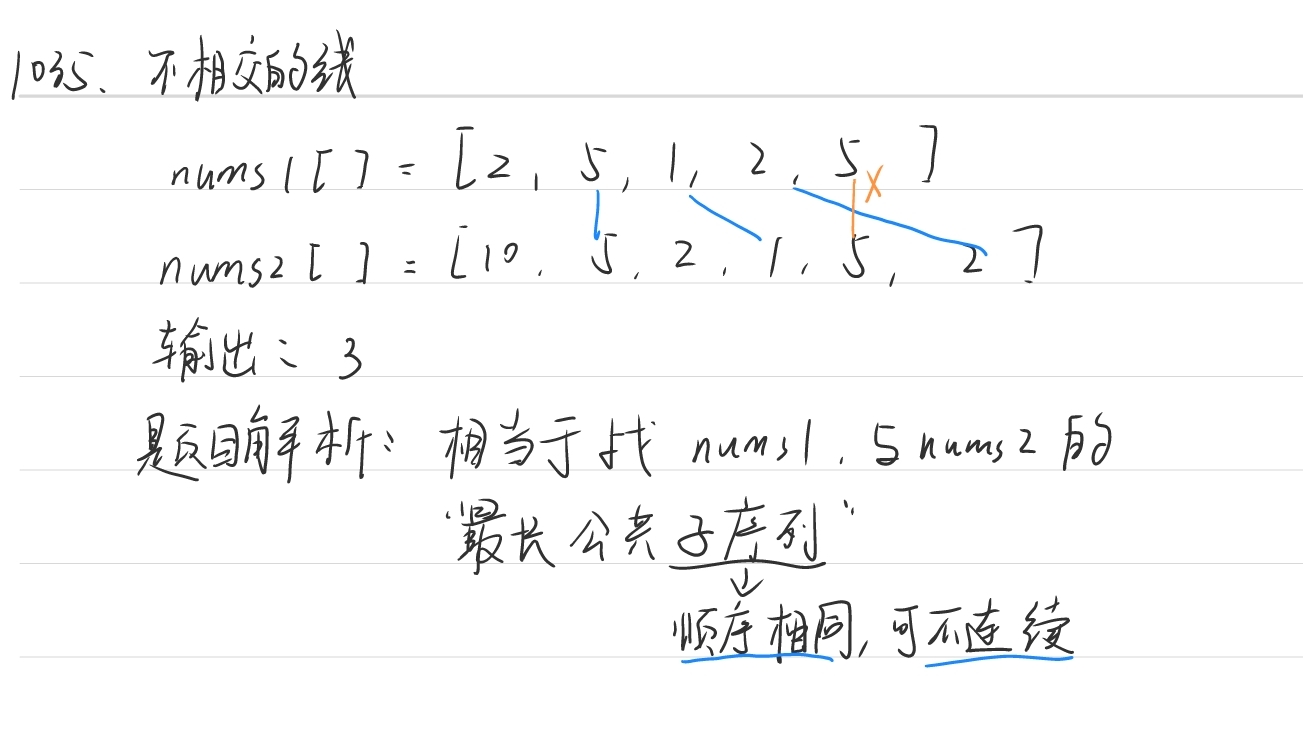 1035、不相交的线
nums1[ ] = [2, 5, 1, 2, 5 ]
×
nums2[ ] = [10, 5, 2, 1, 5, 2 ]
输出: 3
题目解析: 相当于找 nums1、与nums2的
“最长公共子序列”
↓
顺序相同,可不连续